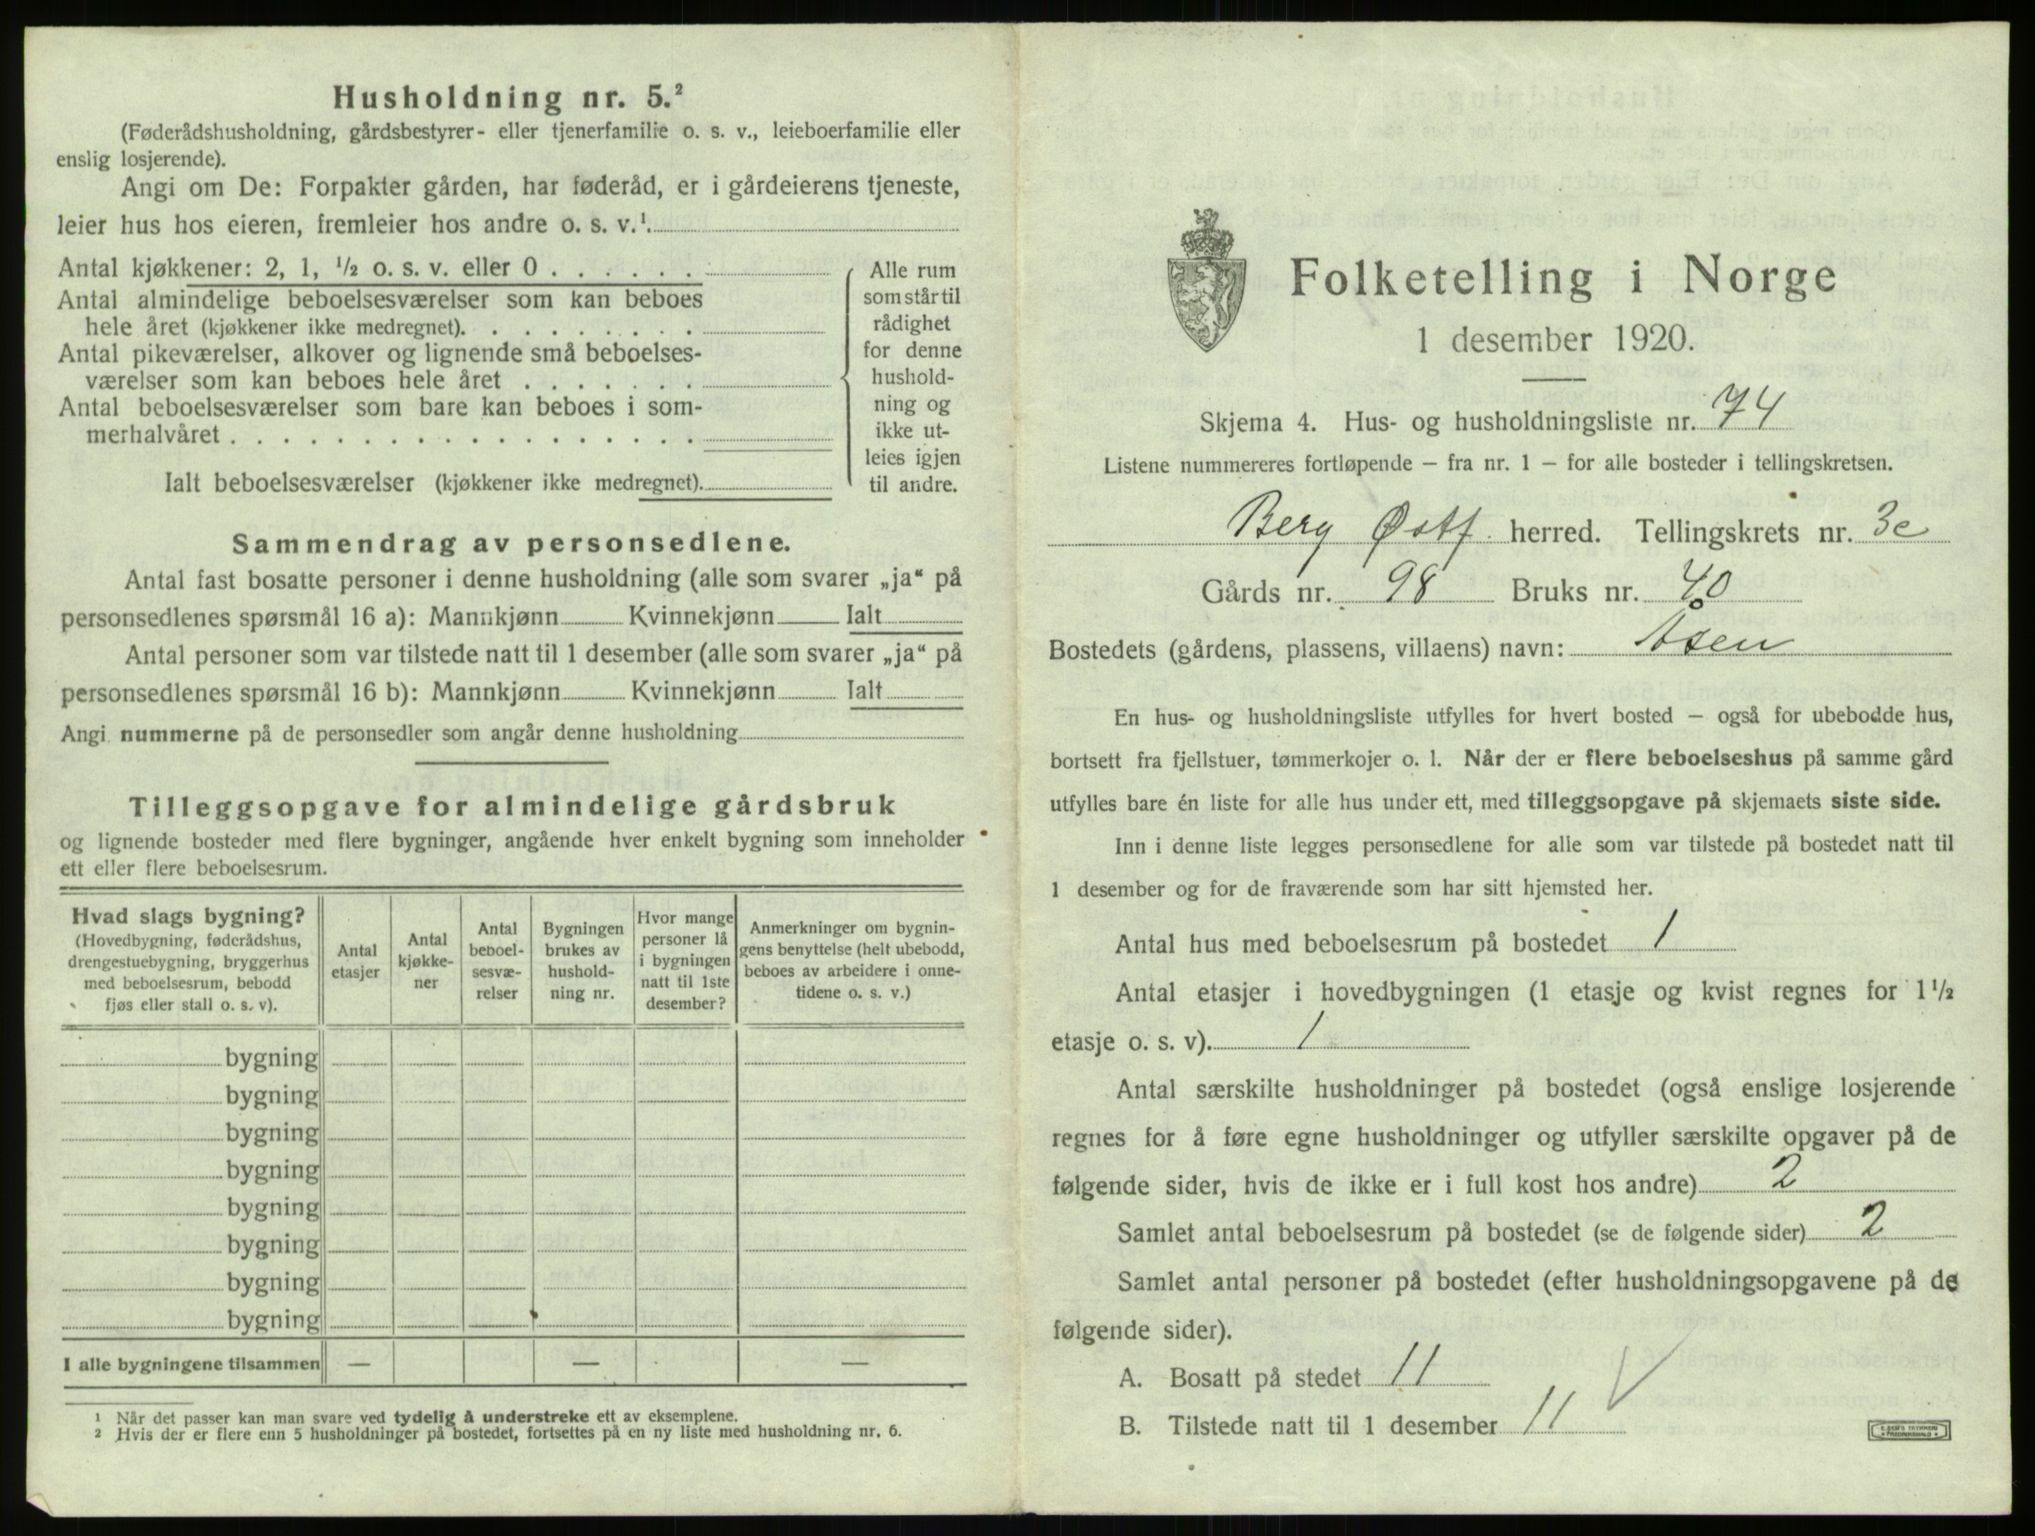 Husholdning nr. 5.²
(Føderådshusholdning, gårdsbestyrer- eller tjenerfamilie o. s. v., leieboerfamilie eller
enslig losjerende).
Angi om De: Forpakter gården, har føderåd, er i gårdeierens tjeneste,
leier hus hos eieren, fremleier hos andre o. s. v.¹
Antal kjøkkener: 2, 1, ½ o. s. v. eller 0 . . . . . .
Antal almindelige beboelsesværelser som kan beboes
hele året (kjøkkener ikke medregnet). . . . . . . . .
Antal pikeværelser, alkover og lignende små beboelses-
værelser som kan beboes hele året . . . . . . .
Antal beboelsesværelser som bare kan beboes i som-
merhalvåret . . . . . . . . . . . . . . . . . .
Ialt beboelsesværelser (kjøkkener ikke medregnet).
Alle rum
som står til
rådighet
for denne
hushold-
ning og
ikke ut-
leies igjen
til andre.
Sammendrag av personsedlene.
Antal fast bosatte personer i denne husholdning (alle som svarer „ja“ på
personsedlenes spørsmål 16 a): Mannkjønn Kvinnekjønn Ialt
Antal personer som var tilstede natt til 1 desember (alle som svarer „ja“ på
personsedlenes spørsmål 16 b): Mannkjønn Kvinnekjønn Ialt
Angi nummerne på de personsedler som angår denne husholdning
Tilleggsopgave for almindelige gårdsbruk
og lignende bosteder med flere bygninger, angående hver enkelt bygning som inneholder
ett eller flere beboelsesrum.
Hvad slags bygning?
(Hovedbygning, føderådshus,
drengestuebygning, bryggerhus
med beboelsesrum, bebodd
fjøs eller stall o. s. v).
Antal
etasjer
Antal
kjøkke-
ner
Antal
beboel-
sesvæ-
relser
Bygningen
brukes av
hushold-
ning nr.
Hvor mange
personer lå
i bygningen
natt til 1ste
desember?
Anmerkninger om bygnin-
gens benyttelse (helt ubebodd,
beboes av arbeidere i onne-
tidene o. s. v.)
bygning
bygning
bygning
bygning
bygning
bygning
bygning
bygning
I alle bygningene tilsammen — — —
¹ Når det passer kan man svare ved tydelig å understreke ett av eksemplene.
² Hvis der er flere enn 5 husholdninger på bostedet, fortsettes på en ny liste med husholdning nr. 6.
Folketelling i Norge
1 desember 1920.
Skjema 4. Hus- og husholdningsliste nr. 74
Listene nummereres fortløpende – fra nr. 1 – for alle bosteder i tellingskretsen.
Berg Østf. herred. Tellingskrets nr. 3c
Gårds nr. 98 Bruks nr. 40
Bostedets (gårdens, plassens, villaens) navn: Åsen
En hus- og husholdningsliste utfylles for hvert bosted – også for ubebodde hus,
bortsett fra fjellstuer, tømmerkojer o. l. Når der er flere beboelseshus på samme gård
utfylles bare én liste for alle hus under ett, med tilleggsopgave på skjemaets siste side.
Inn i denne liste legges personsedlene for alle som var tilstede på bostedet natt til
1 desember og for de fraværende som har sitt hjemsted her.
Antal hus med beboelsesrum på bostedet 1
Antal etasjer i hovedbygningen (1 etasje og kvist regnes for 1½
etasje o. s. v). 1
Antal særskilte husholdninger på bostedet (også enslige losjerende
regnes for å føre egne husholdninger og utfyller særskilte opgaver på de
følgende sider, hvis de ikke er i full kost hos andre) 2
Samlet antal beboelsesrum på bostedet (se de følgende sider) 2
Samlet antal personer på bostedet (efter husholdningsopgavene på de
følgende sider).
A. Bosatt på stedet 11
B. Tilstede natt til 1 desember 11